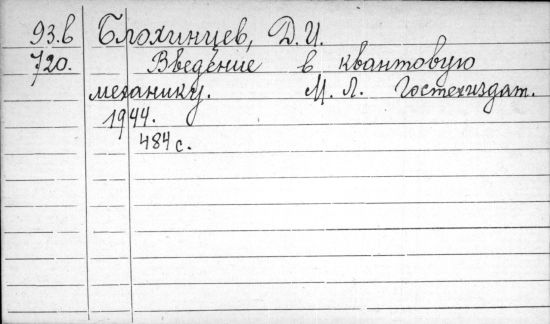 93.в Блохинцев, Д.И.
720. Введение в квантовую
механику. М. Л. Гостехиздат.
1944.
484 с.